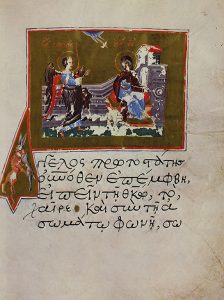 Ἄγγελος πρωτοστάτης
οὐρανόθεν ἐπέμφθη,
εἰπεῖν τῇ θκω, τὸ,
χαῖρε· καὶ σὺν τῇ ἀ
σωμάτω φωνῇ, σω